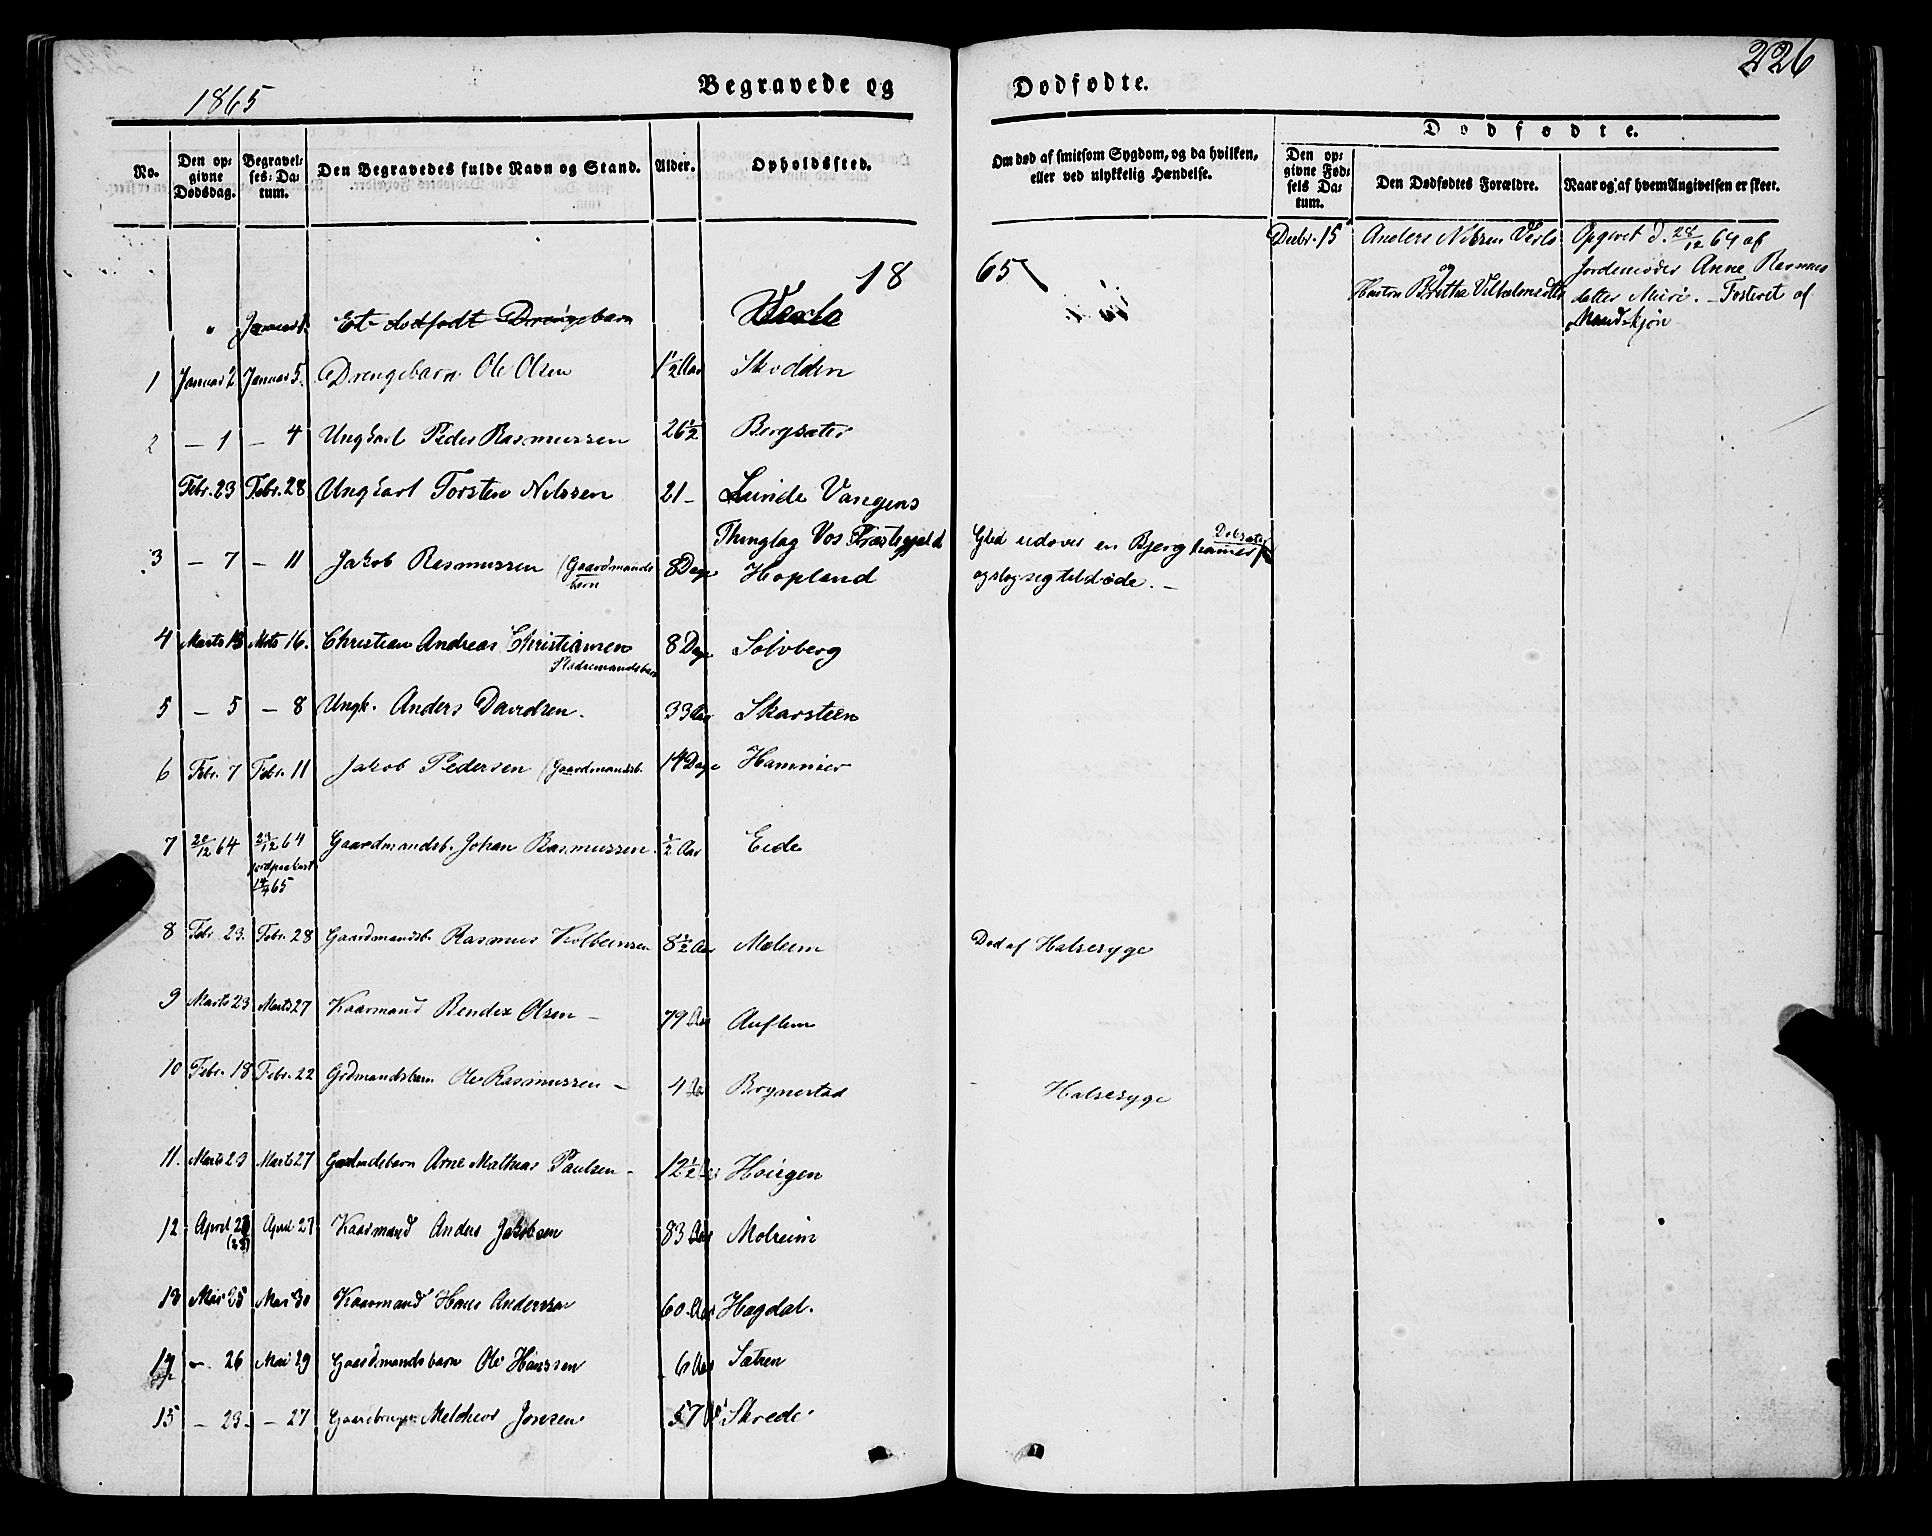 1865 Begravede og Dødfødte. 226
No. Den opgivne Dødsdag. Begravelses-Datum. Den Begravedes fulde Navn og Stand. Alder. Opholdssted. Om død af smitsom Sygdom, og da hvilken, eller ved ulykkelig Hændelse. Dødfødte. Den opgivne Fødsels Datum. Den Dødfødtes Forældre. Naar og af hvem Angivelsen er skeet.
Decbr. 15 Anders Nilsen Verlo og Hustru Britha Vilhelmsdtr Opgivet d. 28/12 64 af
Jordemoder Anne Rasmus
datter Muri. Fosteret af
Mandskjøn
18 65
" Januar Et dødfødt Drengebarn
1 Januar 2 Januar 5. Drengebarn Ole Olsen 1 1/2 Aar Skodden
2 — 1 — 4 Ungkarl Peder Rasmussen 26 1/2 Bergsæter
Febr. 23 Febr. 28 Ungkarl Torsten Nilssen 21 — Lunde Vangens
Thinglag Vos Præstegjeld Gled udover en Bjerghamer
3 — 7 — 11 Jakob Rasmussen (Gaardmands barn 8 Dage Hopland og slog sig tildøde. —
4 Marts 13 Mrts 16. Christian Andreas Christiansen 8 Dage Solvberg
Pladsemandsbarn
5 — 5 — 8 Ungk. Anders Davidsen. 33 Aar Skarsteen
6 Febr. 7 Febr. 11 Jakob Pedersen (Gaardmandsb. 14 Dage Hammer
7 20/12 64 23/12 64 Gaardmandsb. Johan Rasmussen. 1/2 Aar Eide
jordpaakast
65
8 Febr. 23. Febr. 28 Gaardmandsb. Rasmus Kolbeinsen 8 1/2 Aar Mælum Død af Halsesyge
9 Marts 23 Marts 27 Kaarmand Bendix Olsen — 79 Aar Auflem
10 Febr. 18 Febr. 22 Grdmandsbarn Ole Rasmussen — 4 Aar Bognestad Halsesyge
11. Marts 23 Marts 27 Arne Mathias Paulsen — 12 1/2 Aar Hoiegen
12 April 23 April 27 Kaarmand Anders Jakobsen 83 Aar Molreim
(22)
13 Mai 25 Mai 30 Kaarmand Hans Anderssen 60 Aar Hagdal.
14 — 26 Mai 29 Gaardmandsbarn Ole Hanssen 6 Aar Sætren
15 — 23 — — 27 Melchior Jonsen 57 Skrede